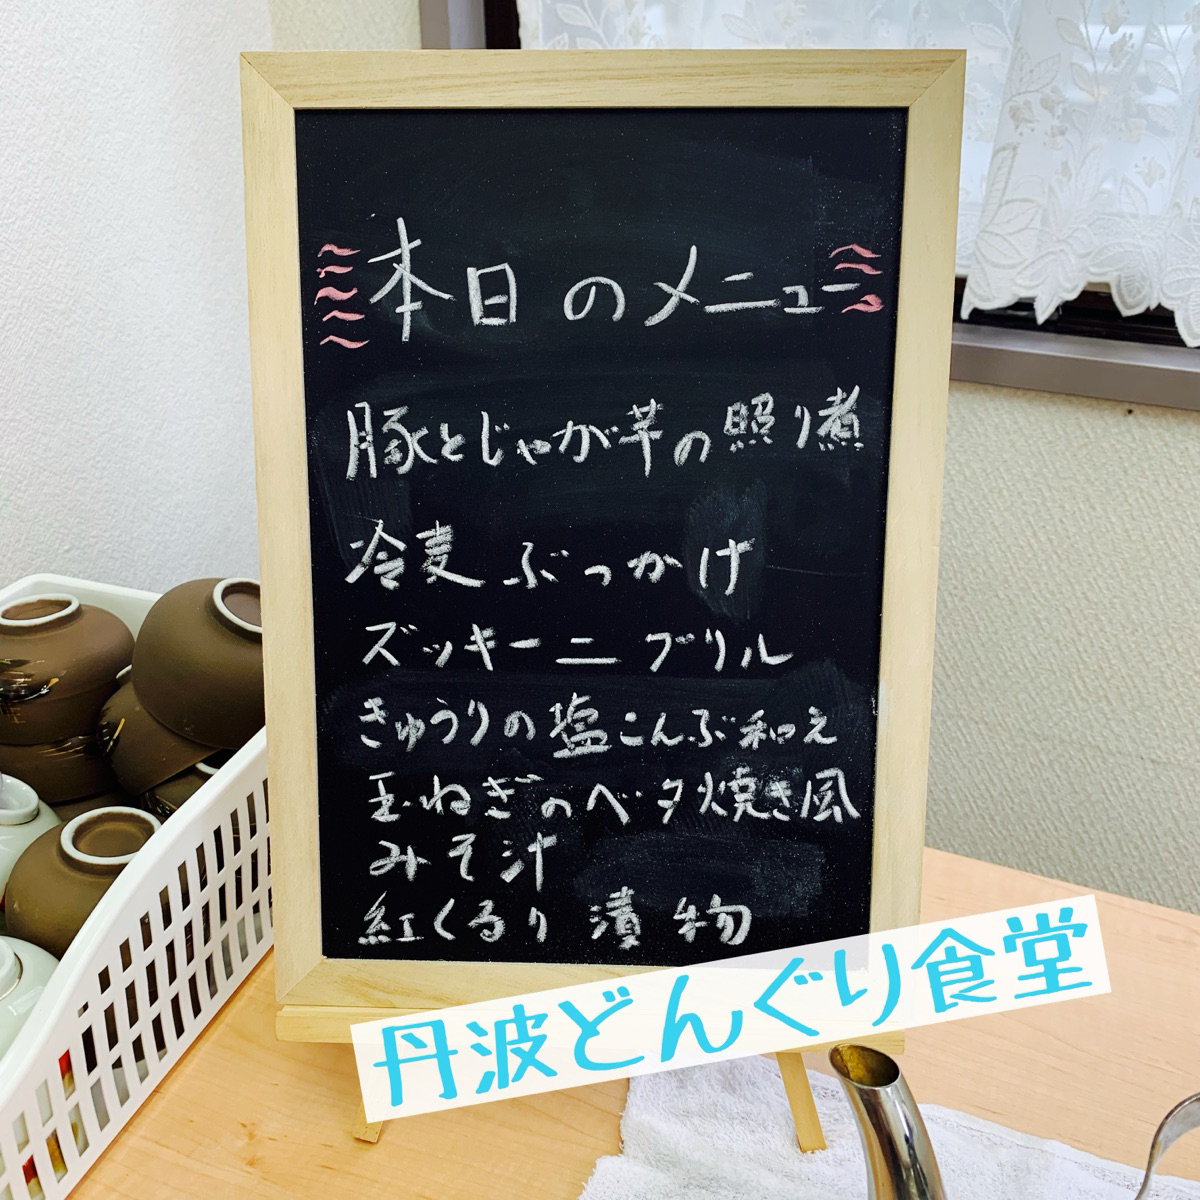 本日のメニュー
豚とじゃが芋の照り煮
冷麦ぶっかけ
ズッキーニブリル
きゅうりの塩こんぶ和え
玉ねぎのベタ焼き風
みそ汁
紅くるり漬物
丹波どんぐり食堂